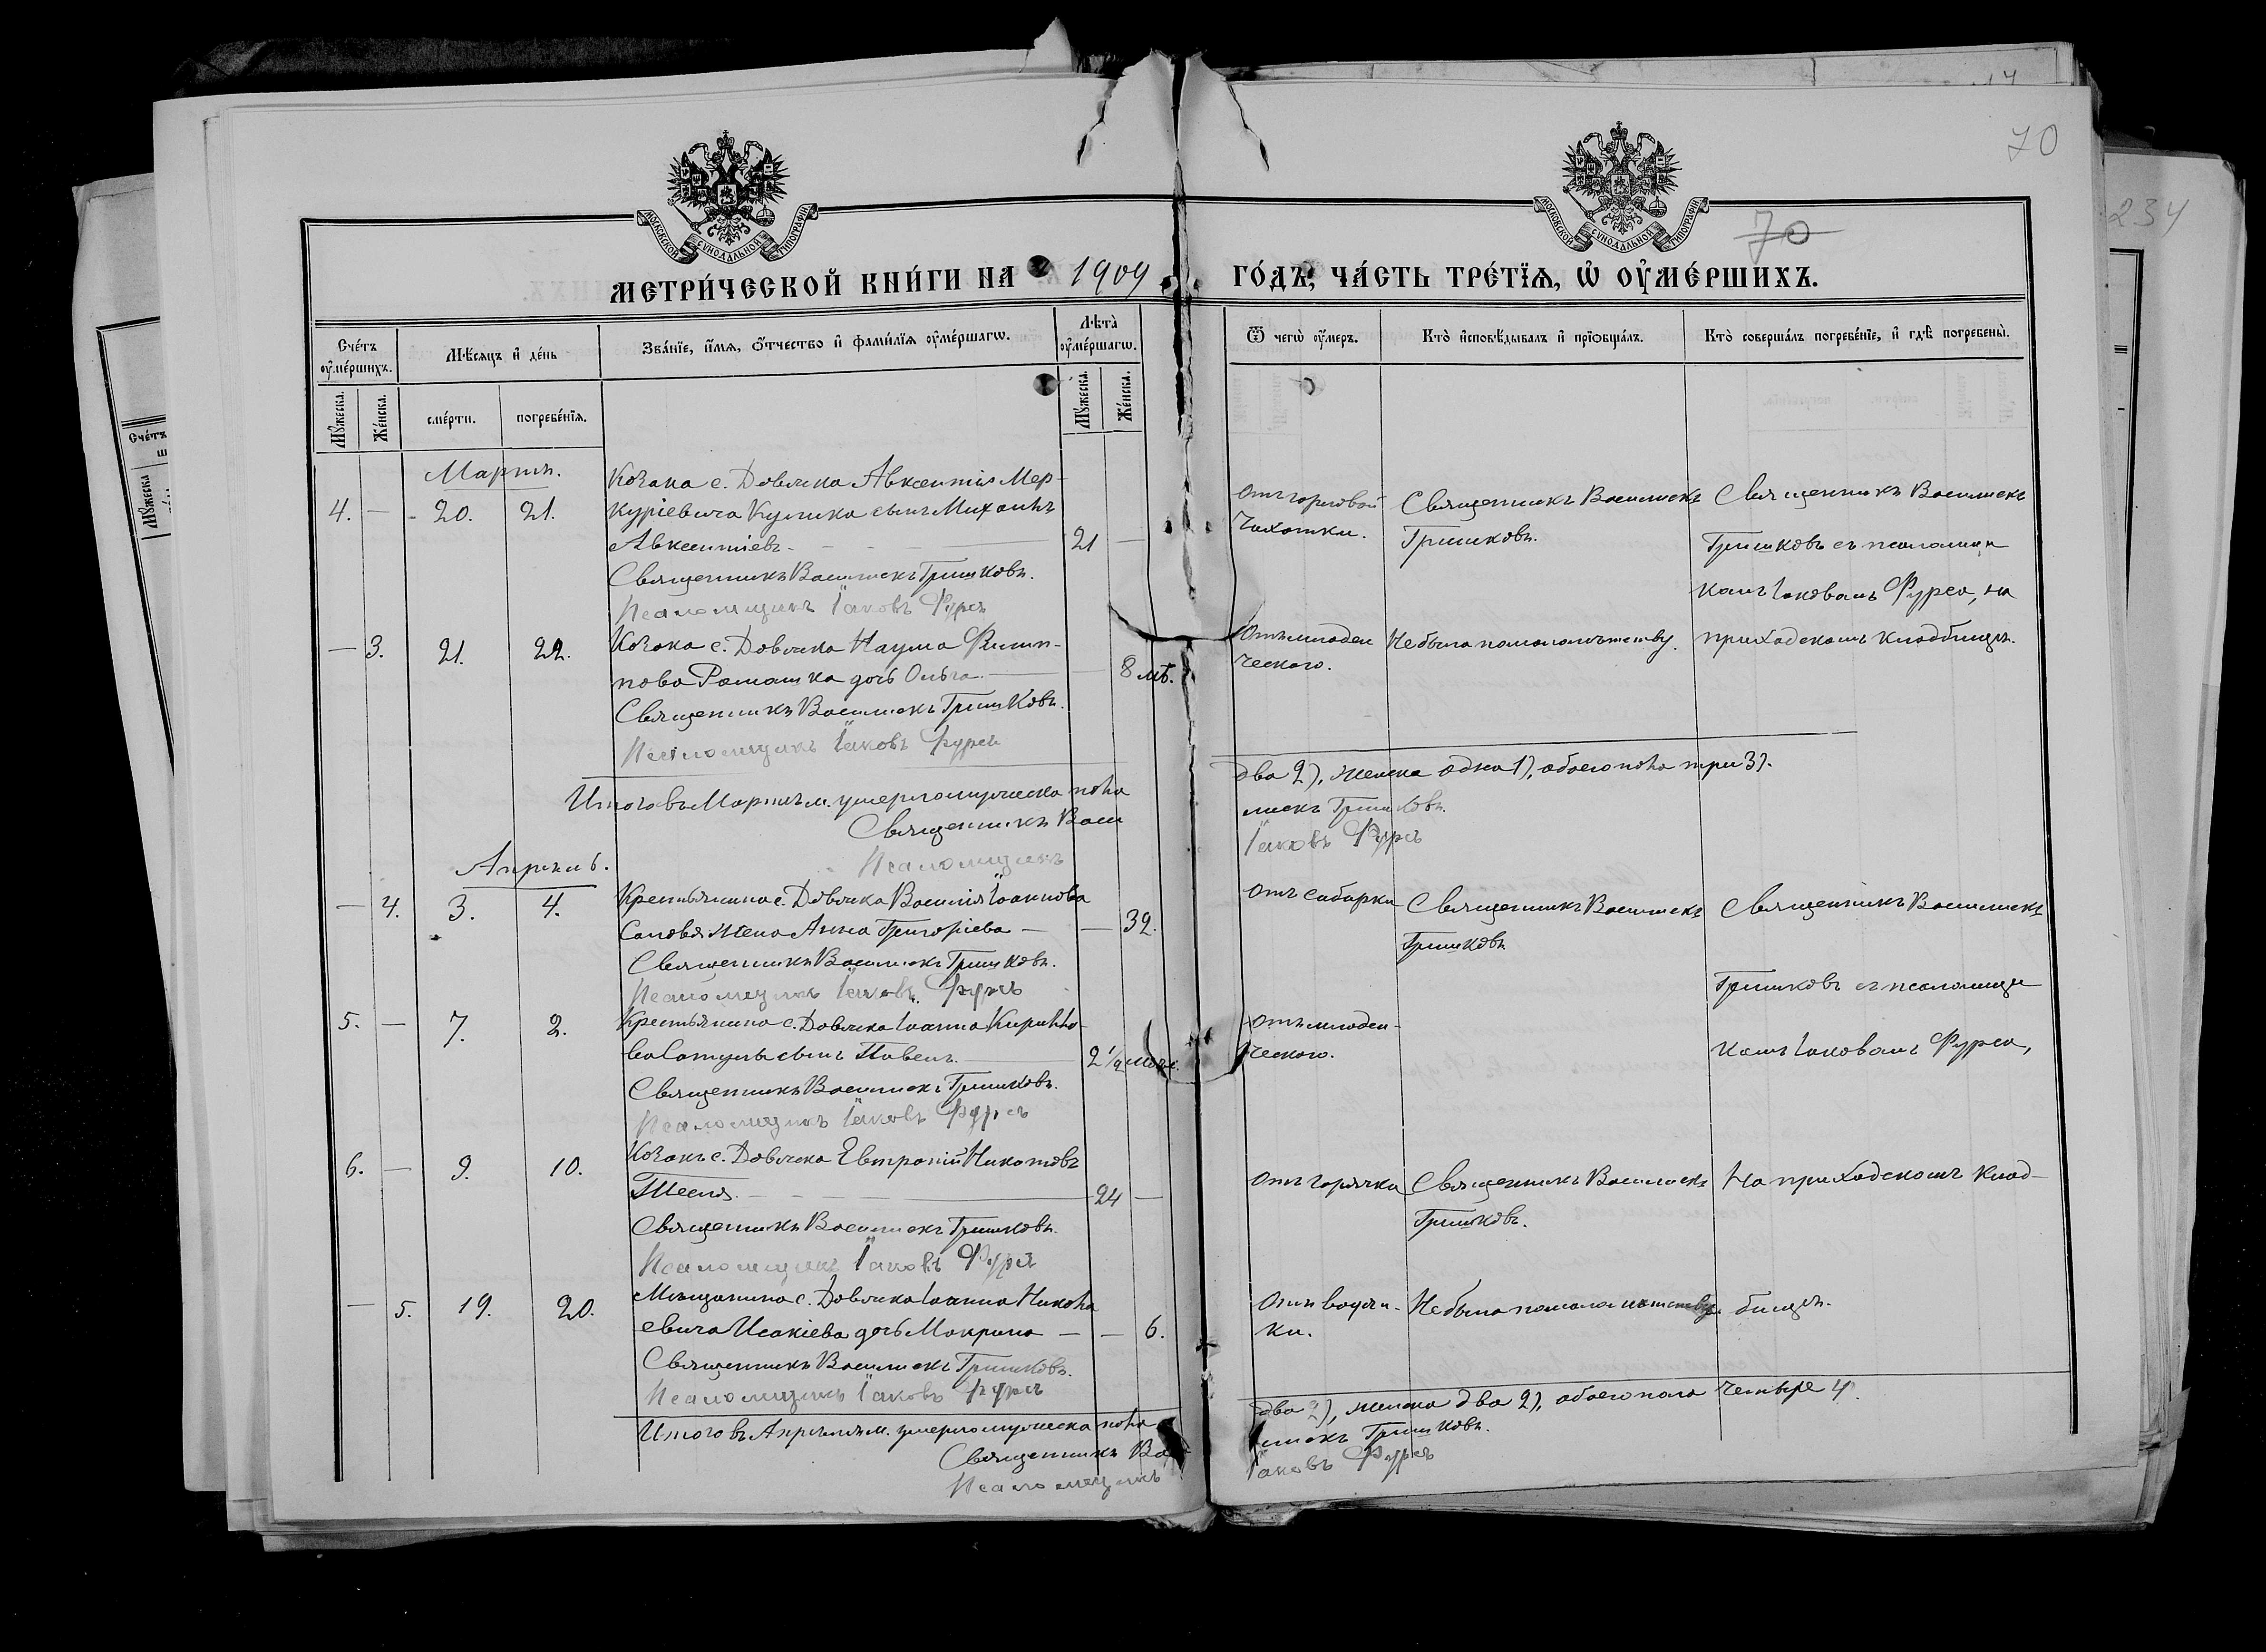 70
234
МОСКОВСКОЙ СУНОДАЛЬНОЙ ТИПОГРАФІИ
МОСКОВСКОЙ СУНОДАЛЬНОЙ ТИПОГРАФІИ
70
МЕТРИ́ЧЕСКОЙ КНИ́ГИ НА 1909
ГО́ДЪ, ЧА́СТЬ ТРЕ́ТЇѦ, Ѡ҆ ОУ҆МЕ́РШИХЪ.
Сче́тъ оу҆ме́ршихъ.
Мѣ́сяцъ и҆ де́нь
Зва́нїе, и҆́мѧ, ѻ҆́тчество и҆ фами́лїѧ оу҆ме́ршагѡ.
Лѣта̀ оу҆ме́ршагѡ.
Ѿ чегѡ̀ оу҆́меръ.
Кто̀ и҆сповѣ́дывалъ и҆ прїѡбща́лъ.
Кто̀ соверша́лъ погребе́нїе, и҆ гдѣ̀ погребены̀.
Му́жеска.
Же́нска.
сме́рти.
погребе́нїѧ.
Му́жеска.
Же́нска.
Мартъ.
4. — 20. 21.
Козака с. Довжика Авксентія Мер-
куріевича Кулика сынъ Михаилъ
Авксентіевъ. 21 —
Священникъ Василискъ Гришковъ.
Псаломщикъ Іаковъ Фурсъ
Отъ горловой
чахотки.
Священникъ Василискъ
Гришковъ.
Священникъ Василискъ
Гришковъ съ псаломщи
комъ Іаковомъ Фурса, на
приходскомъ кладбищѣ.
— 3. 21. 22.
Козака с. Довжика Наума Филип-
пова Ромашка дочь Ольга. — 8 лѣ.
Священникъ Василискъ Гришковъ.
Псаломщикъ Іаковъ Фурсъ
Отъ младен
ческого.
Не была по малолѣтству.
Итого въ Мартѣ м. умерло мужеска пола
два 2), женска одна 1), обоего пола три 3).
Священникъ Васи
лискъ Гришковъ.
Псаломщикъ
Іаковъ Фурсъ
Апрѣль.
— 4. 3. 4.
Крестьянина с. Довжика Василія Іоаннова
жена Анна Григоріева — — 32.
Священникъ Василискъ Гришковъ.
Псаломщикъ Іаковъ Фурсъ
Священникъ Василискъ
Гришковъ
Священникъ Василискъ
Гришковъ съ псаломщи
комъ Іаковомъ Фурса,
5. — 7. 2.
Крестьянина с. Довжика Іоанна Кирилло-
сынъ Павелъ. 2 1/2
Священникъ Василискъ Гришковъ.
Псаломщикъ Іаковъ Фурсъ
Отъ младен-
ческого.
6. — 9. 10.
Козакъ с. Довжика Евтропій
24 —
Священникъ Василискъ Гришковъ.
Псаломщикъ Іаковъ Фурсъ
Отъ горячки
Священникъ Василискъ
Гришковъ.
На приходскомъ клад-
бищѣ.
— 5. 19. 20.
Мѣщанина с. Довжика Іоанна Никола
евича Исакіева дочь Макрина — — 6.
Священникъ Василискъ Гришковъ.
Псаломщикъ Іаковъ Фурсъ
Отъ водян-
ки.
Не была по малолѣтству.
Итого въ Апрѣлѣ м. умерло мужеска пола
два 2), женска два 2), обоего пола четыре 4.
Священникъ Ва
лискъ Гришковъ.
Псаломщикъ
Іаковъ Фурсъ